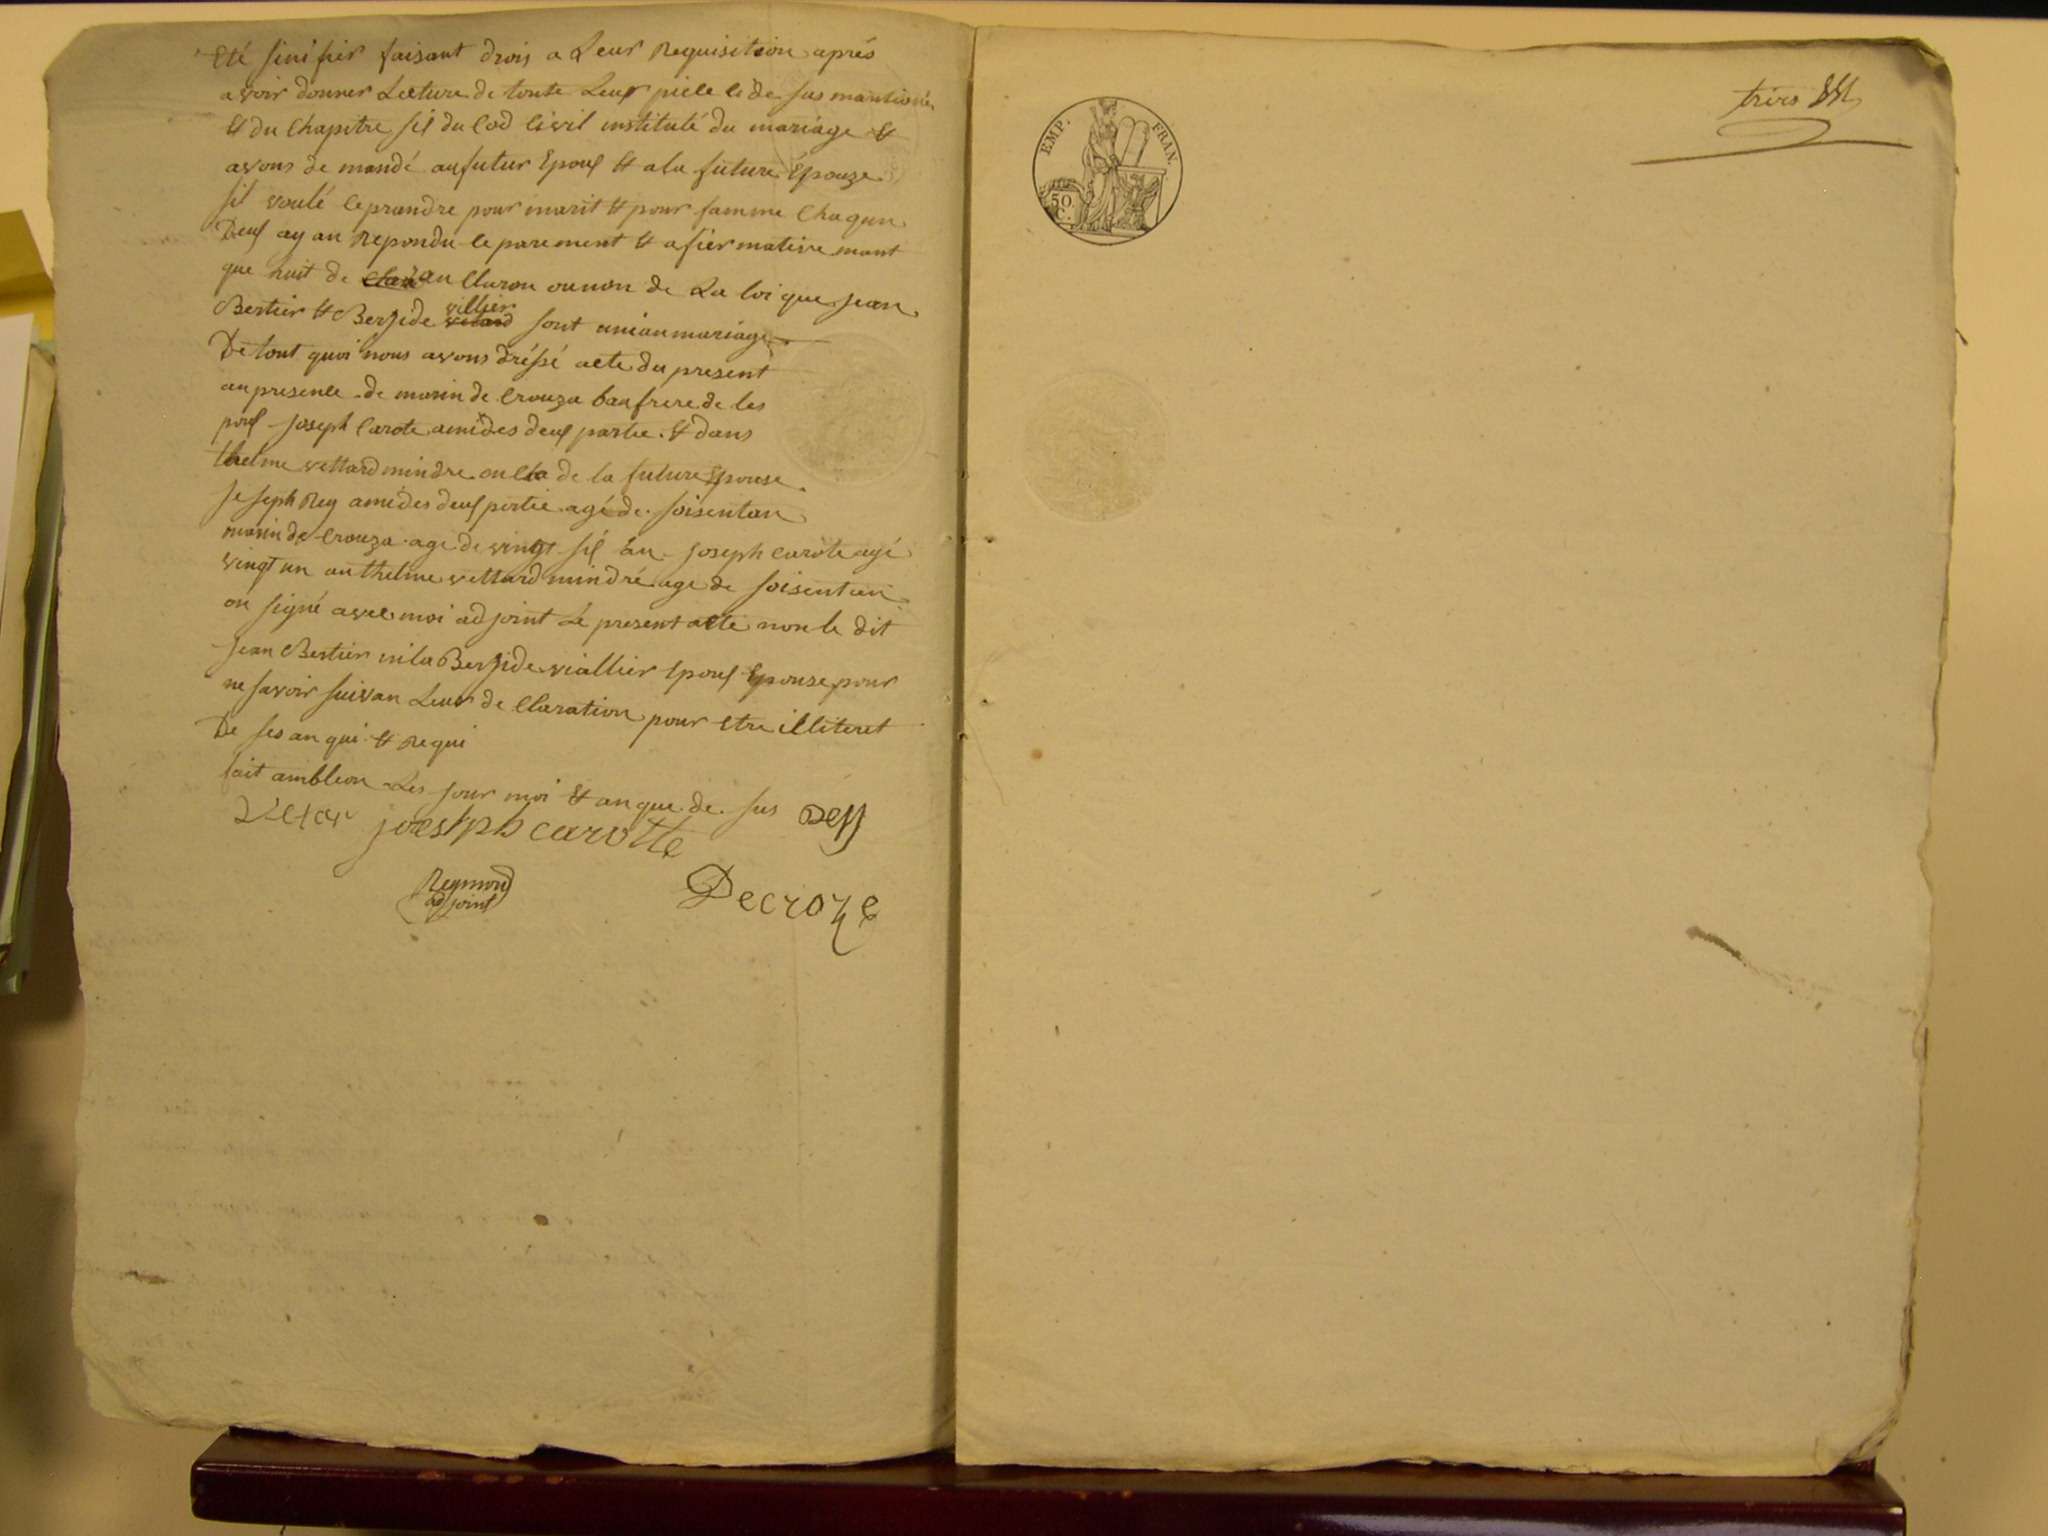 Eté sinifier faisant drois a Leur Requisition aprés
avoir donner Lecture de toute Leur piece ci de sus mantioné
& du Chapitre sis du Cod Civil institulé du mariage &
avons de mandé au futur Epous & a la future Epouze
sil voulé ce prandre pour marit & pour famme Chaqun
Deus ay an Repondu ce parement & afiermative mant
que nuit de an Claron ou non de La loi que jean
Bertier & Berzide villier sont uni an mariage
De tout quoi nous avons dréssé acte du present
an presence de marin de Crouza baufrere de les
pous joseph Carote ami des deus partie & dans
thelme vettard mindre oncla de la future Epouse
Joseph Rey ami des deus partie agé de soisentan
marin de Crouza age de vingt sis an joseph carote agé
vingt un an thelme vettard mindré age de soisentan
on signé avec moi adjoint Le present acte non le dit
jean Bertier ni la Berzide viallier Epous Epouse pour
ne savoir suivan Leur de Claration pour etre illiteret
De ses an qui & Requi
fait ambleon Les jour moi & an que de sus
joeshph carotte
Reymond
adjoint
Decroze
EMP. FRAN.
50.
C.
trois